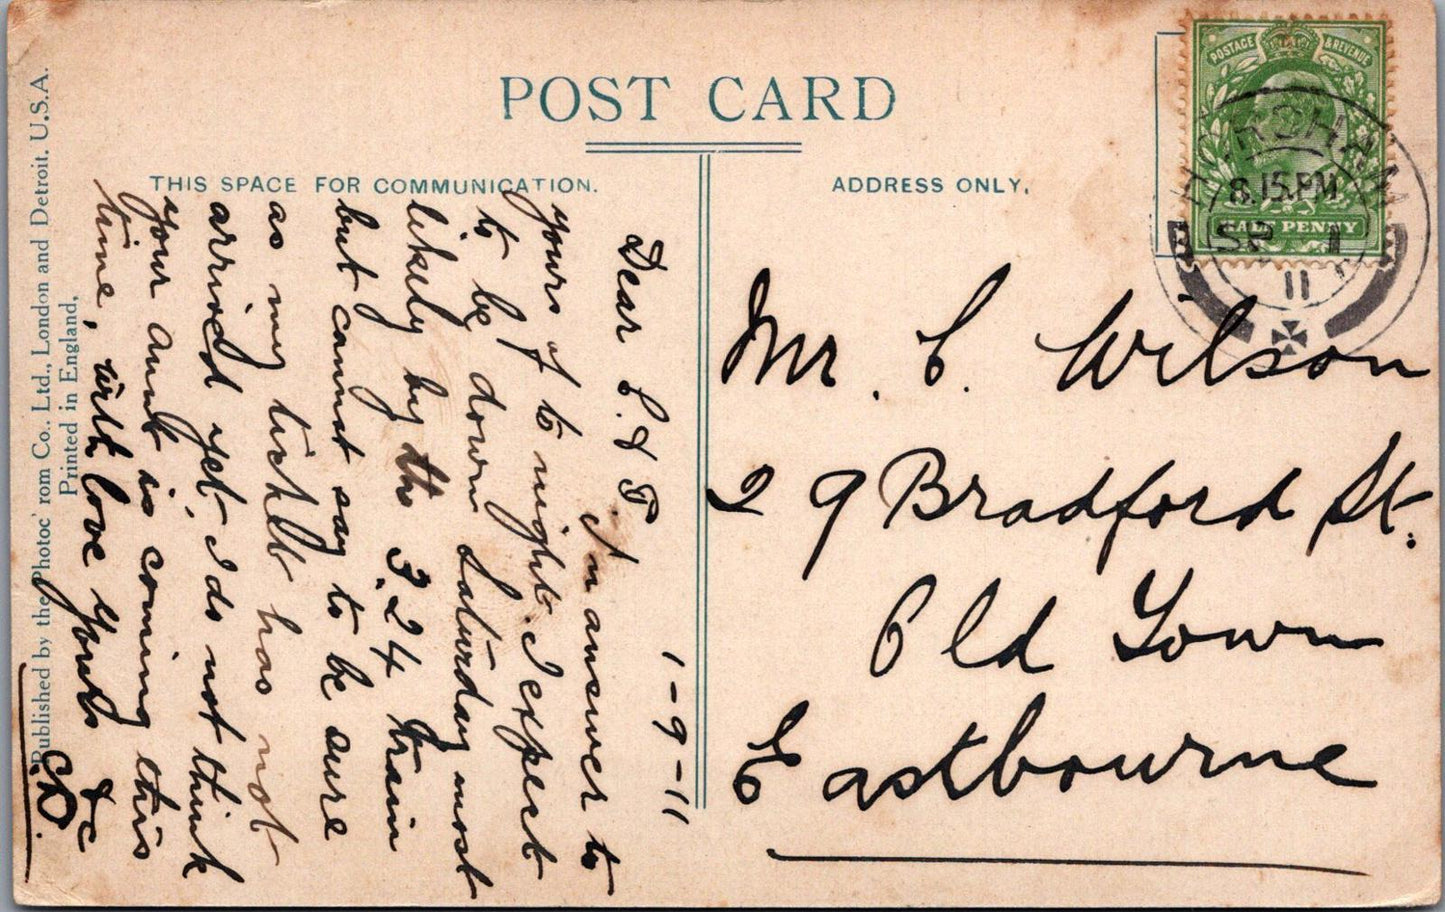 POST CARD
THIS SPACE FOR COMMUNICATION.
ADDRESS ONLY.
POSTAGE & REVENUE
HALF PENNY
HORSHAM
8.15.PM
SP 1
11
1-9-11
Dear C. & F.
In answer to
yours of to night. I expect
to be down Saturday most
likely by the 3.24 train
but cannot say to be sure
as my ticket has not
arrived yet. I do not think
your aunt is coming this
time, with love yours &c
C.D.
Mr. C. Wilson
29 Bradford St.
Old Town
Eastbourne
Published by the Photoc'rom Co., Ltd., London and Detroit. U.S.A.
Printed in England,